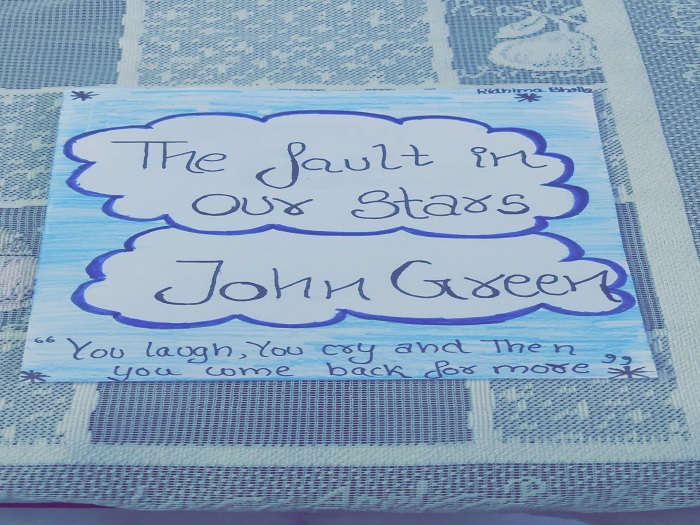 Ridhima Bhalla
The fault in
our Stars
John Green
“You laugh, You cry and Then
you come back for more”